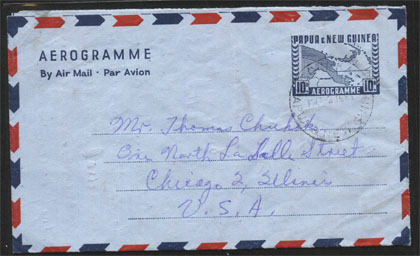 AEROGRAMME
By Air Mail · Par Avion
PAPUA & NEW GUINEA
10D AEROGRAMME 10D
Mr. Thomas
One North La Salle Street
Chicago 2, Illinois
U.S.A.